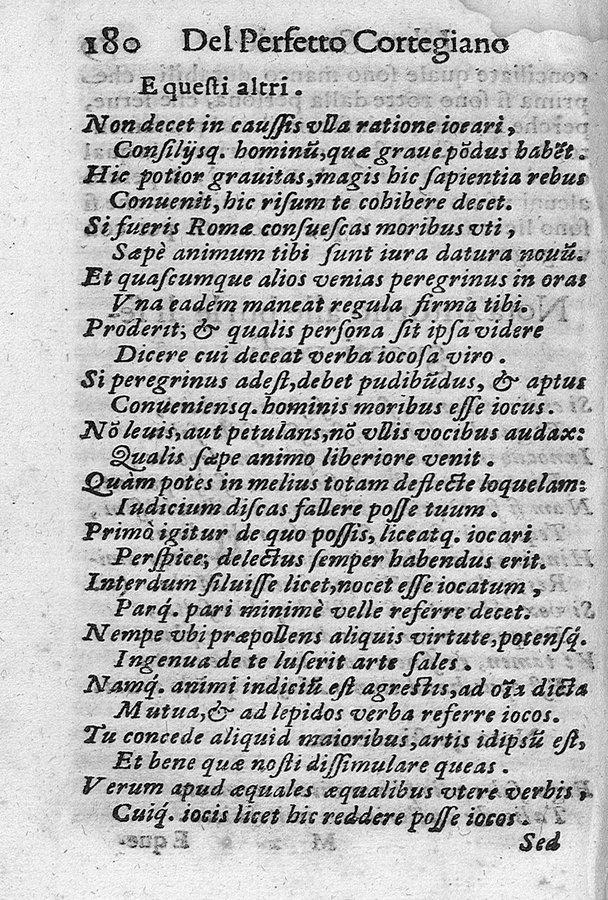 180 Del Perfetto Cortegiano
E questi altri.
Non decet in caussis vlla ratione iocari,
Consilijsq. hominũ, quæ graue põdus habẽt.
Hic potior grauitas, magis hic sapientia rebus
Conuenit, hic risum te cohibere decet.
Si fueris Romæ consuescas moribus vti,
Sæpè animum tibi sunt iura datura nouũ.
Et quascumque alios venias peregrinus in oras
Vna eadem maneat regula firma tibi.
Proderit; & qualis persona sit ipsa videre
Dicere cui deceat verba iocosa viro.
Si peregrinus adest, debet pudibũdus, & aptus
Conueniensq. hominis moribus esse iocus.
Nõ leuis, aut petulans, nõ vllis vocibus audax:
Qualis sæpe animo liberiore venit.
Quàm potes in melius totam deflecte loquelam:
Iudicium discas fallere posse tuum.
Primò igitur de quo possis, liceatq. iocari
Perspice; delectus semper habendus erit.
Interdum siluisse licet, nocet esse iocatum,
Parq. pari minimè velle referre decet.
Nempe vbi præpollens aliquis virtute, potensq́.
Ingenua de te luserit arte sales.
Namq́. animi indiciũ est agrestis, ad oĩa dicta
Mutua, & ad lepidos verba referre iocos.
Tu concede aliquid maioribus, artis idipsũ est,
Et bene quæ nosti dissimulare queas.
Verum apud æquales æqualibus vtere verbis,
Cuiq́. iocis licet hic reddere posse iocos
Sed